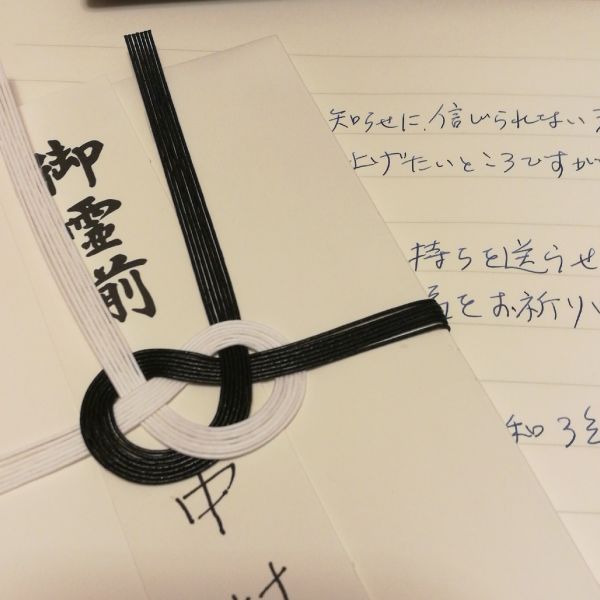 御霊前
中
知らせに、信じられない
上げたいところですが
持ちを送らせ
をお祈りい
知子